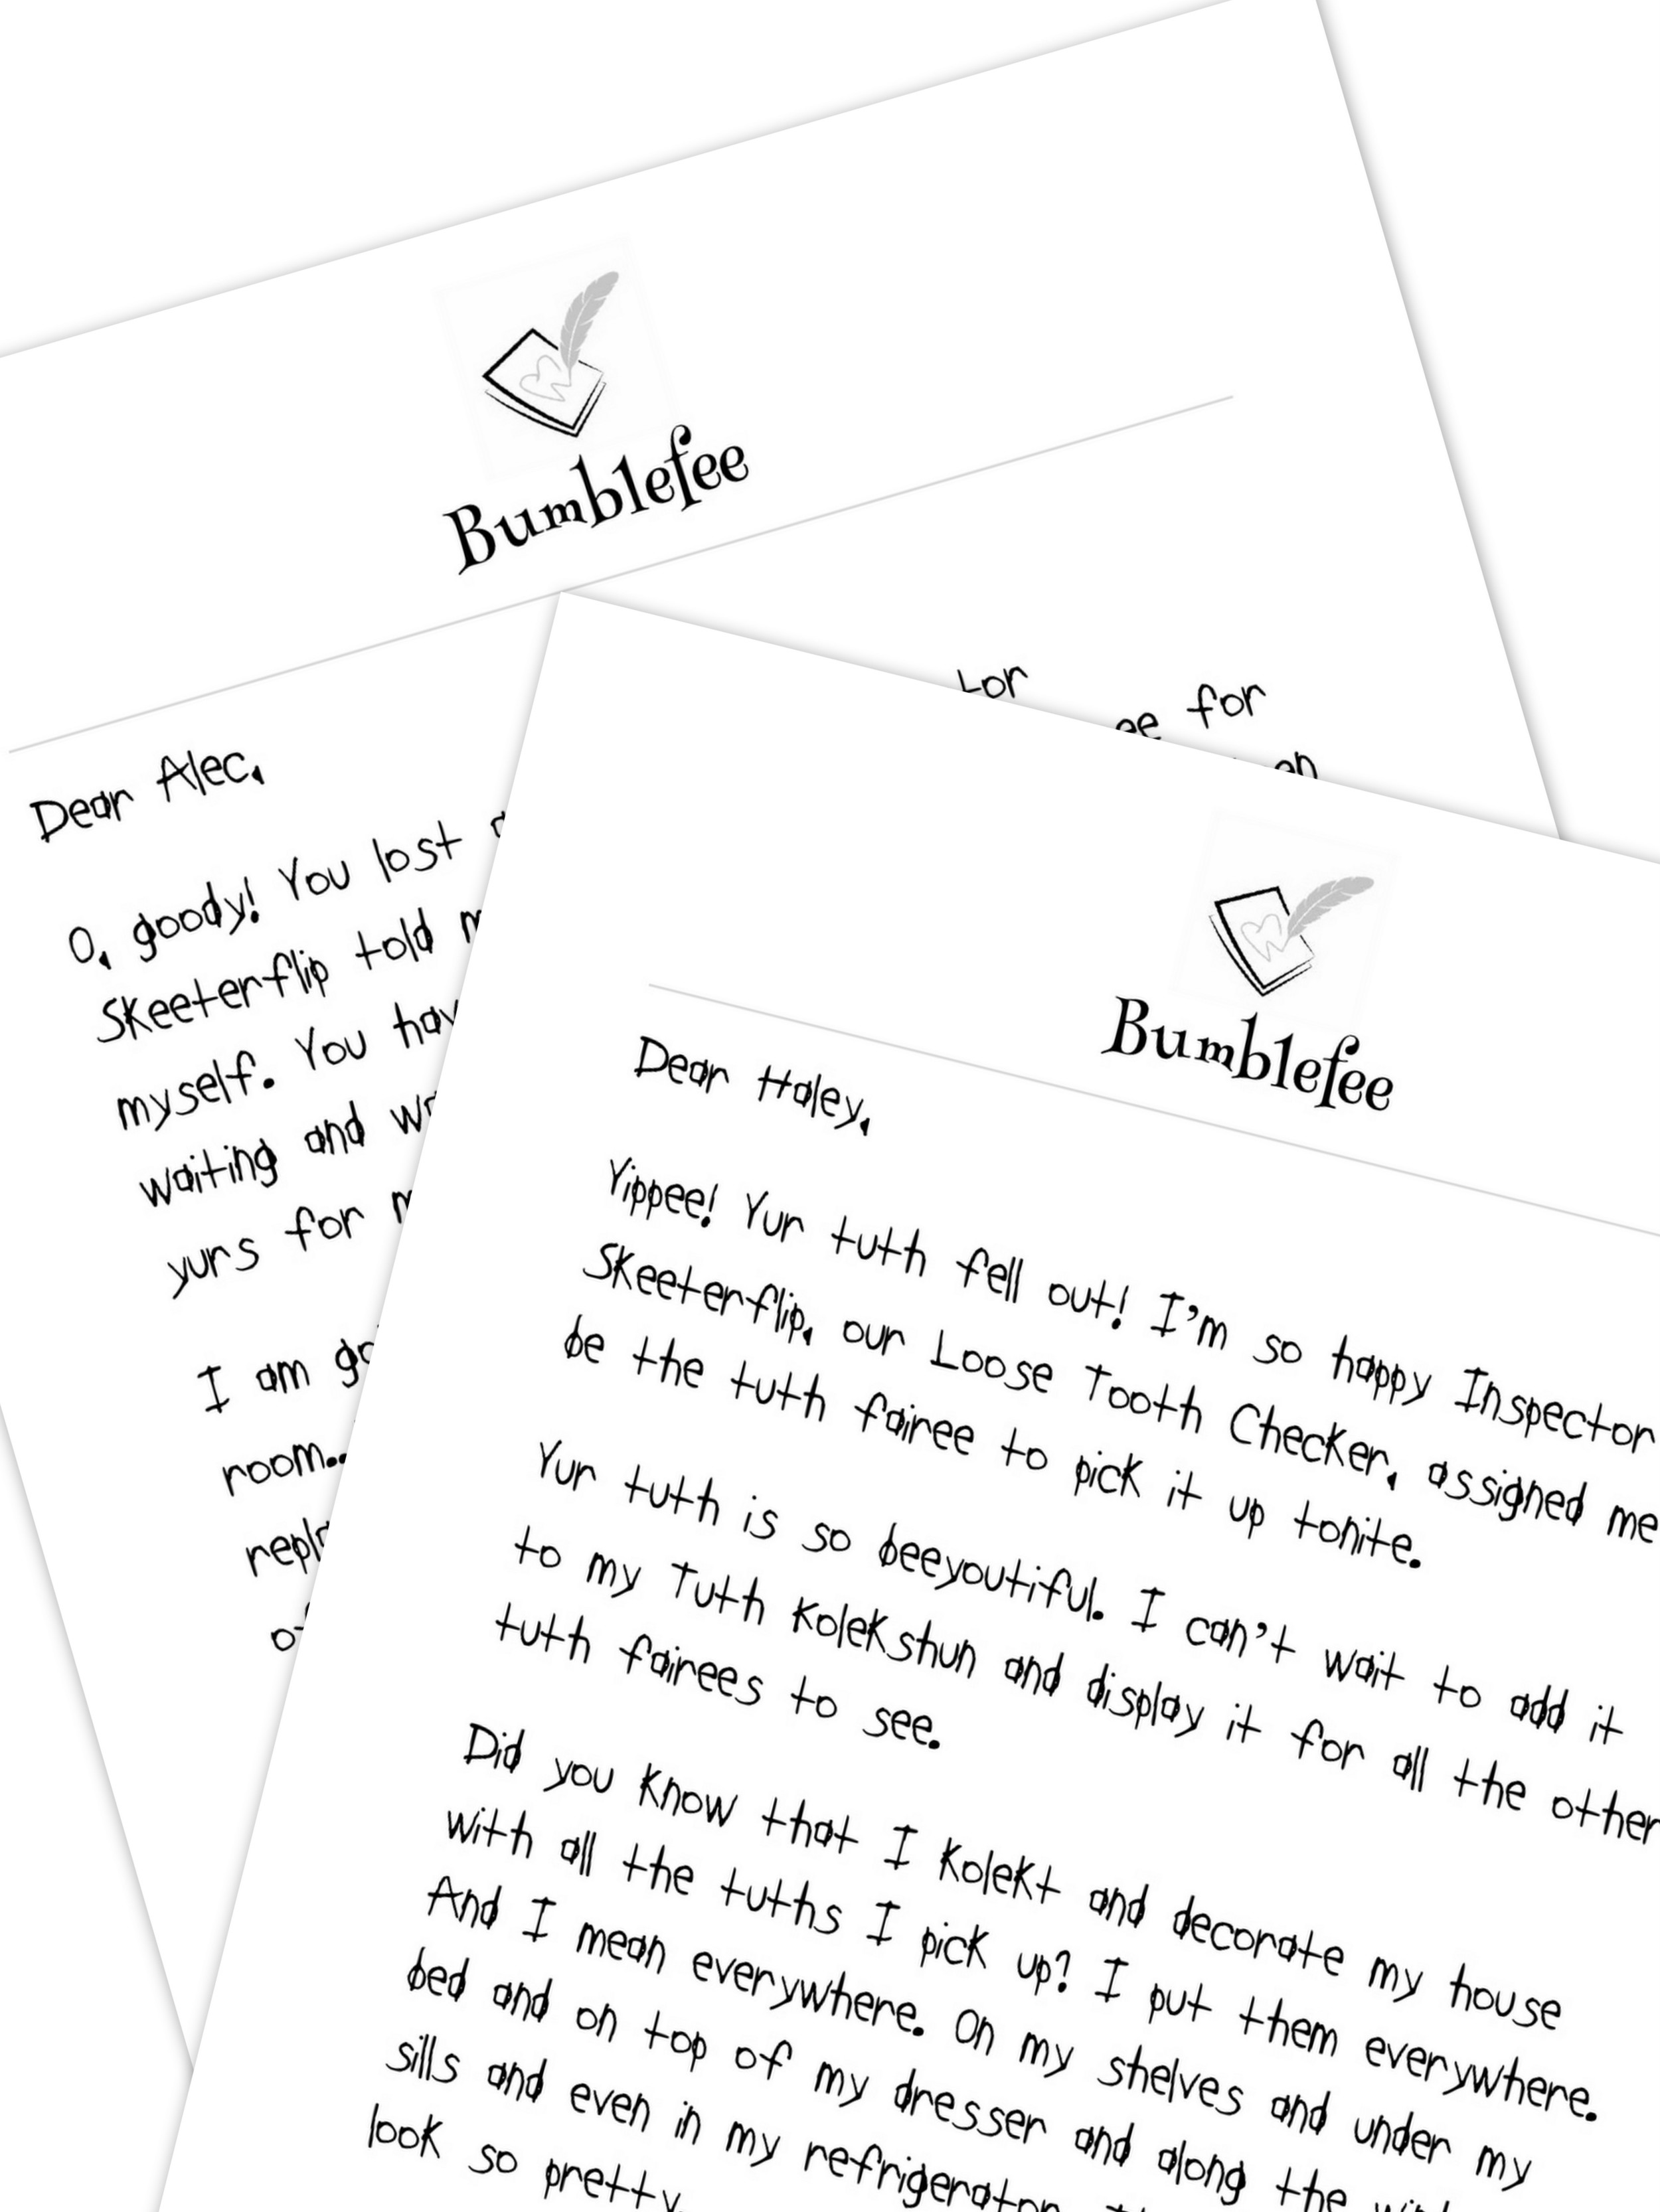 Bumblefee
Dear Alec,
O, goody! You lost
Skeeterflip told
myself. You
waiting and
yurs for
I am
room..
for
for
Bumblefee
Dear Haley,
Yippee! Yur tuth fell out! I'm so happy Inspector
Skeeterflip, our Loose Tooth Checker, assigned me
be the tuth fairee to pick it up tonite.
Yur tuth is so beeyoutiful. I can't wait to add it
to my Tuth Kolekshun and display it for all the other
tuth fairees to see.
Did you know that I kolekt and decorate my house
with all the tuths I pick up? I put them everywhere.
And I mean everywhere. On my shelves and under my
bed and on top of my dresser and along the
sills and even in my refrigerator
look so pretty